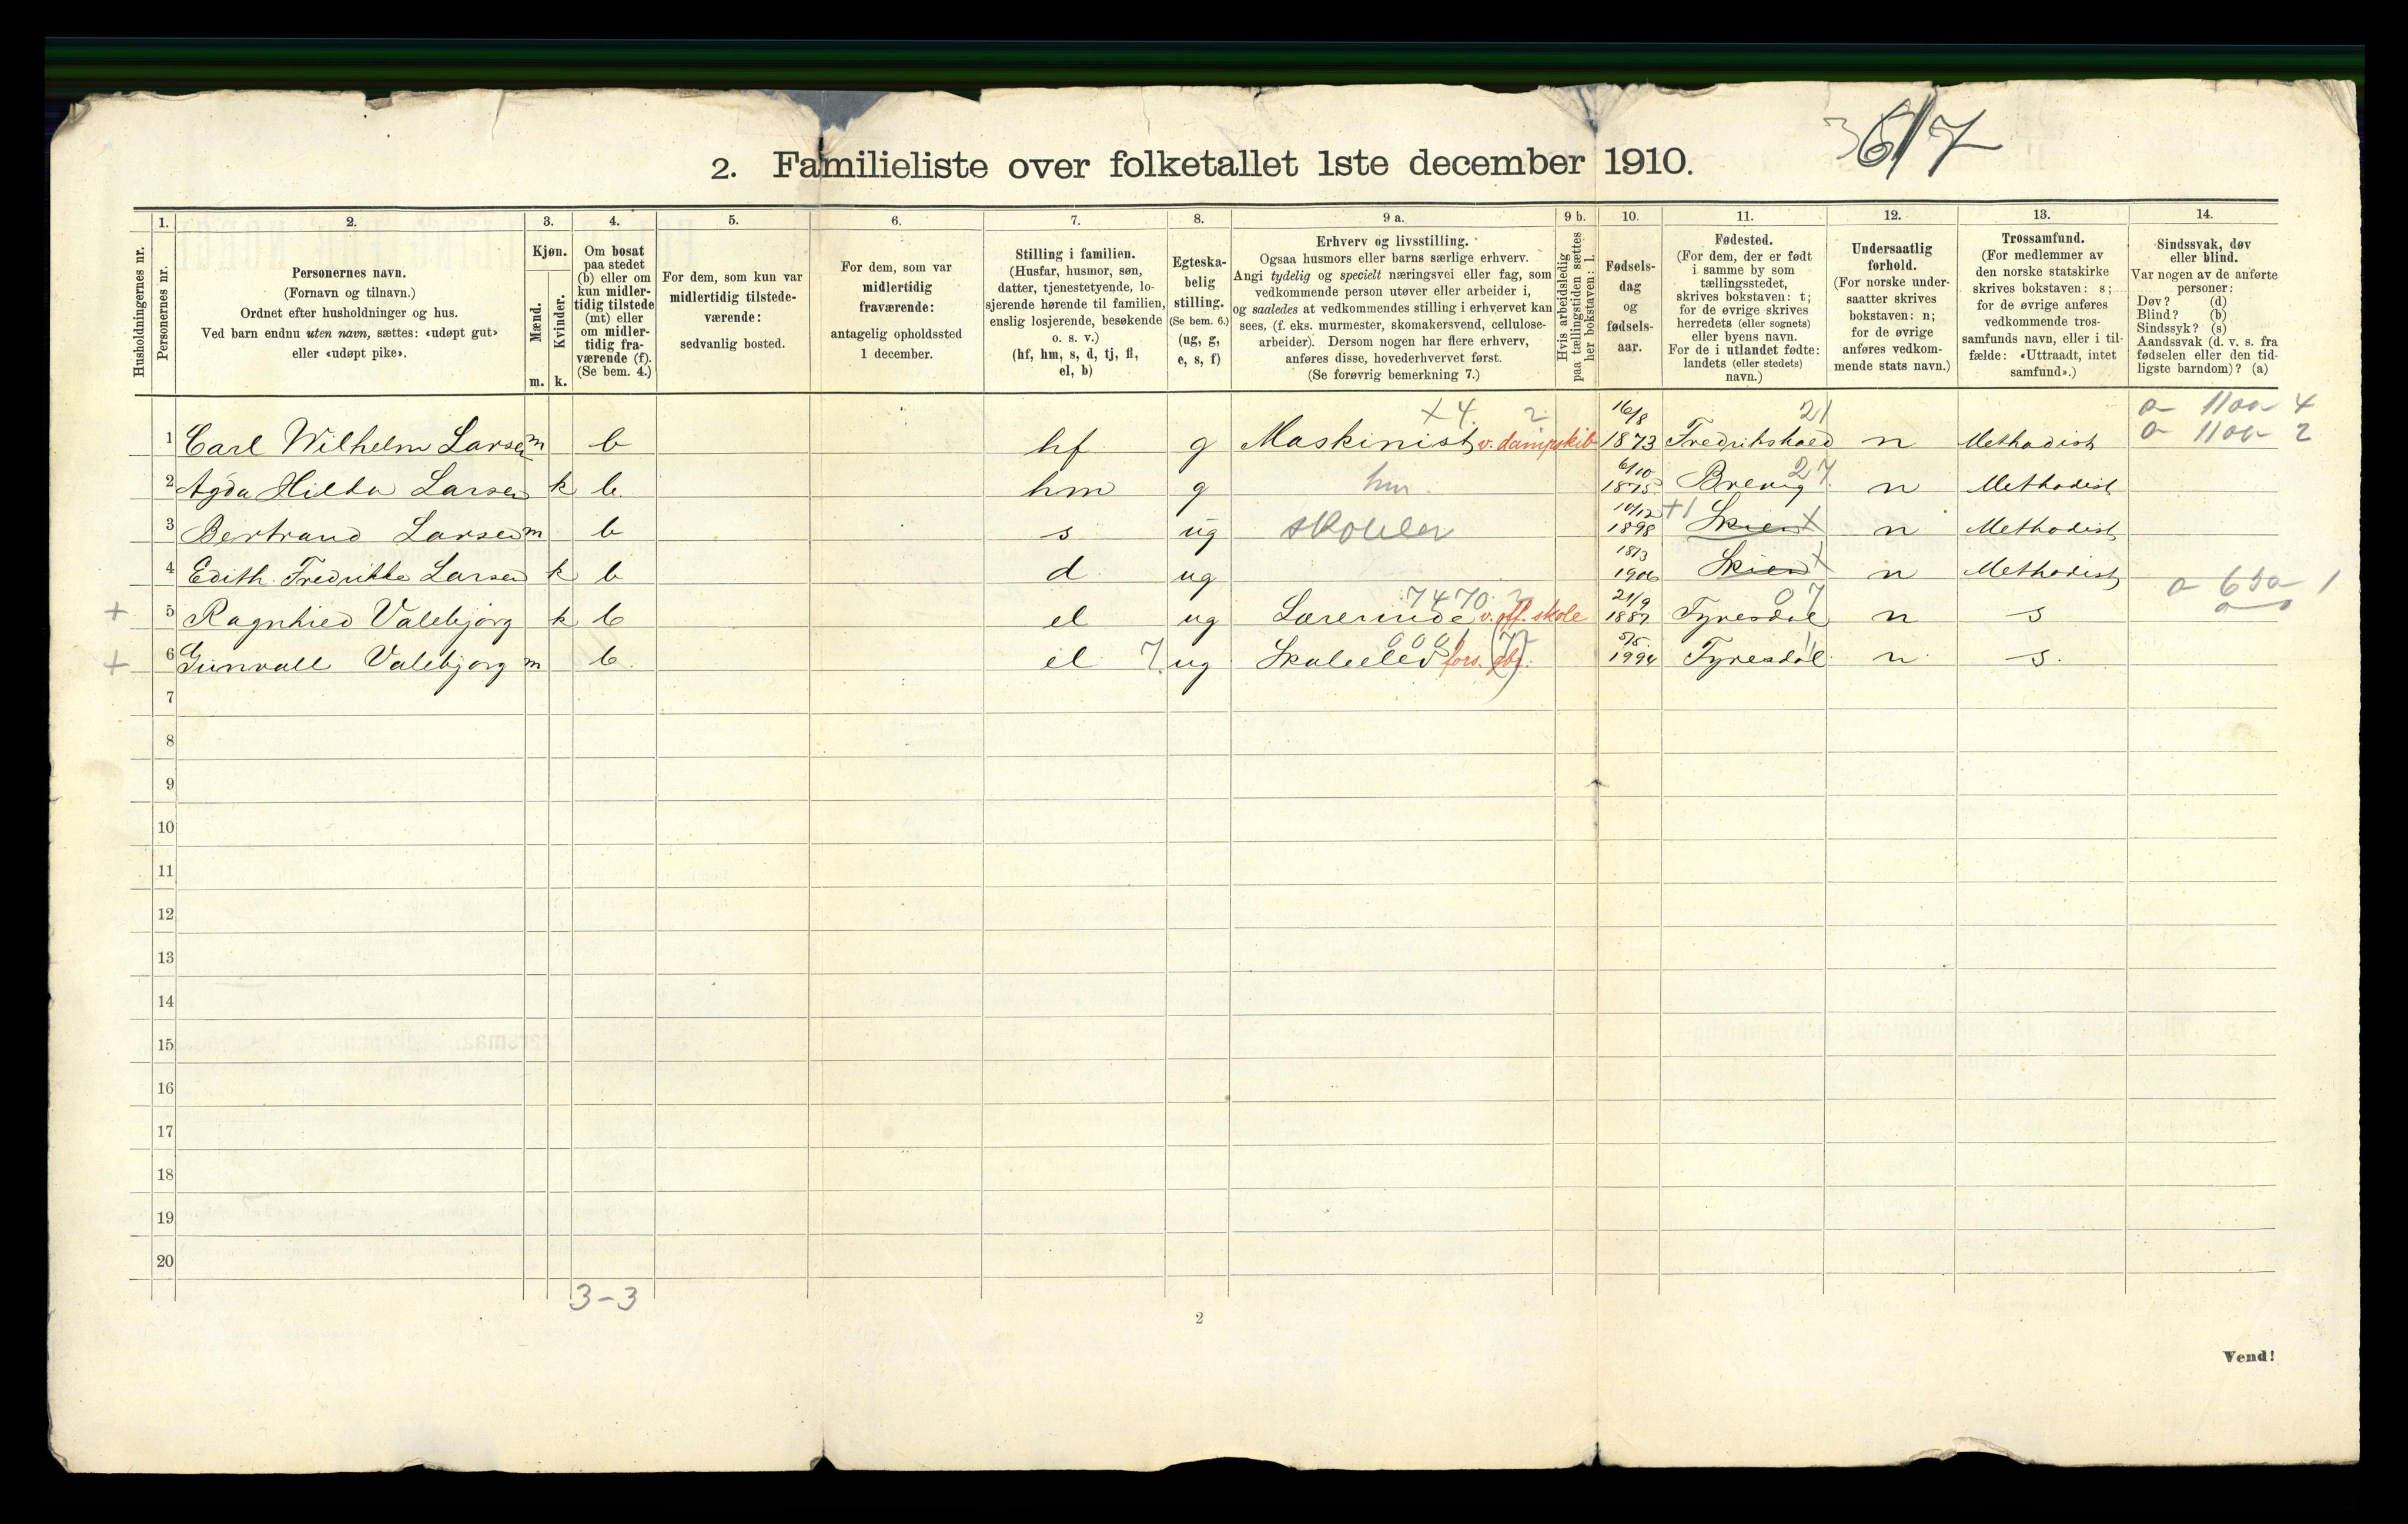 3617
2. Familieliste over folketallet 1ste december 1910.
1. 2. 3. 4. 5. 6. 7. 8. 9 a. 9 b. 10. 11. 12. 13. 14.
Husholdningernes nr.
Personernes nr.
Personernes navn.
(Fornavn og tilnavn.)
Ordnet efter husholdninger og hus.
Ved barn endnu uten navn, sættes: «udøpt gut»
eller «udøpt pike».
Kjøn.
Mænd.
Kvinder.
m. k.
Om bosat
paa stedet
(b) eller om
kun midler-
tidig tilstede
(mt) eller
om midler-
tidig fra-
værende (f).
(Se bem. 4.)
For dem, som kun var
midlertidig tilstede-
værende:
sedvanlig bosted.
For dem, som var
midlertidig
fraværende:
antagelig opholdssted
1 december.
Stilling i familien.
(Husfar, husmor, søn,
datter, tjenestetyende, lo-
sjerende hørende til familien,
enslig losjerende, besøkende
o. s. v.)
(hf, hm, s, d, tj, fl,
el, b)
Egteska-
belig
stilling.
(Se bem. 6.)
(ug, g,
e, s, f)
Erhverv og livsstilling.
Ogsaa husmors eller barns særlige erhverv.
Angi tydelig og specielt næringsvei eller fag, som
vedkommende person utøver eller arbeider i,
og saaledes at vedkommendes stilling i erhvervet kan
sees, (f. eks. murmester, skomakersvend, cellulose-
arbeider). Dersom nogen har flere erhverv,
anføres disse, hovederhvervet først.
(Se forøvrig bemerkning 7.)
Hvis arbeidsledig
paa tællingstiden sættes
her bokstaven: l.
Fødsels-
dag
og
fødsels-
aar.
Fødested.
(For dem, der er født
i samme by som
tællingsstedet,
skrives bokstaven: t;
for de øvrige skrives
herredets (eller sognets)
eller byens navn.
For de i utlandet fødte:
landets (eller stedets)
navn.)
Undersaatlig
forhold.
(For norske under-
saatter skrives
bokstaven: n;
for de øvrige
anføres vedkom-
mende stats navn.)
Trossamfund.
(For medlemmer av
den norske statskirke
skrives bokstaven: s;
for de øvrige anføres
vedkommende tros-
samfunds navn, eller i til-
fælde: «Uttraadt, intet
samfund».)
Sindssvak, døv
eller blind.
Var nogen av de anførte
personer:
Døv? (d)
Blind? (b)
Sindssyk? (s)
Aandssvak (d. v. s. fra
fødselen eller den tid-
ligste barndom)? (a)
x 4. 2 16/8 21
1 Carl Wilhelm Larsen m b hf g Maskinist v. dampskib 1873 Fredrikshald n Methodist
6/10 27
2 Agda Hilda Larsen k b. hm g hm. 1875 Brevig n Methodist
10/12 +1
3 Bertrand Larsen m b s ug skoleelev 1898 Skien x n Methodist
18/3
4 Edith Fredrikke Larsen k b d ug 1906 Skien x n Methodist
7470 21/9 07
+ 5 Ragnhied Valebjørg k b el ug Lærerinde v. off. skole 1887 Tyresdal n s
0001 5/5
+ 6 Gunvall Valebjørg m b. el 7 ug Skoleelev fors. (7) 1994 Tyresdal n s.
7
8
9
10
11
12
13
14
15
16
17
18
19
20
3-3
2
Vend!